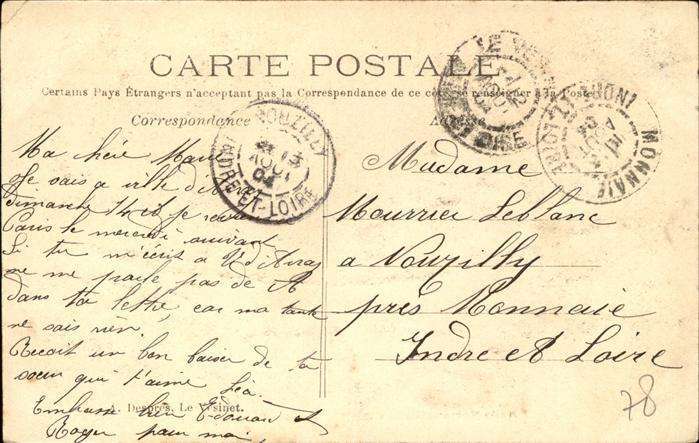 CARTE POSTALE
Certains Pays Étrangers n'acceptent pas la Correspondance de ce côté se renseigner à la Poste
Correspondance
Ma chère
Je sais a ville d'
dimanche 14 et je
Paris le mercredi suivant
Si tu m'écris a V d'Avray
ne me parle pas de A
dans ta lettre, car ma tante
ne sais rien.
Recoit un bon baiser de ta
soeur qui t'aime Léa
Embrasse bien Edouard et
Roger pour moi
A. Desprès, Le Vésinet.
Madame
Mourrier Leblanc
a Nouzilly
près Monnaie
Indre et Loire
78
NOUZILLY
13
AOUT
04
INDRE-ET-LOIRE
LE VESINET
OISE
MONNAIE
INDRE ET LOIRE